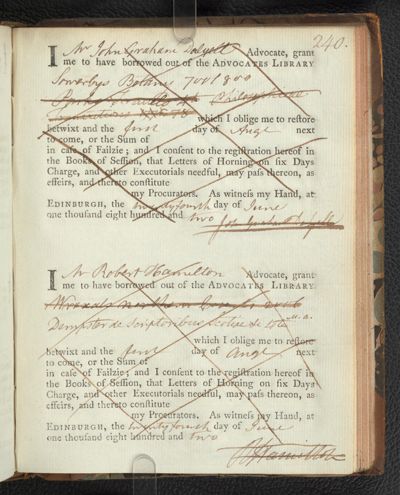 240.
I Mr John Graham Dalyell Advocate, grant
me to have borrowed out of the ADVOCATES LIBRARY
Sowerbys Botany 700 & 800
Philosophical
which I oblige me to restore
betwixt and the first day of Augt next
to come, or the Sum of
in case of Failzie; and I consent to the registration hereof in
the Books of Session, that Letters of Horning on six Days
Charge, and other Executorials needful, may pass thereon, as
effeirs, and thereto constitute
my Procurators. As witness my Hand, at
EDINBURGH, the twentyfourth day of June
one thousand eight hundred and two
I Mr Robert Hamilton Advocate, grant
me to have borrowed out of the ADVOCATES LIBRARY
Wraxals Northern
Dempster de Scriptoribus Scotiae
which I oblige me to restore
betwixt and the first day of Augt next
to come, or the Sum of
in case of Failzie; and I consent to the registration hereof in
the Books of Session, that Letters of Horning on six Days
Charge, and other Executorials needful, may pass thereon, as
effeirs, and thereto constitute
my Procurators. As witness my Hand, at
EDINBURGH, the twentyfourth day of June
one thousand eight hundred and two
R Hamilton